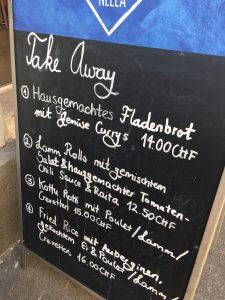 NELLA
Take Away
1 Hausgemachtes Fladenbrot
mit Gemüse Currys 14.00CHF
2 Lamm Rolls mit gemischtem
Salat & hausgemachter Tomaten-
Chili Sauce & Raita 12.50CHF
3 Kottu Rotti mit Poulet/Lamm/
Crevetten 15.00CHF
4 Fried Rice mit Auberginen,
gekochtem Ei & Poulet/Lamm
Crevetten 16.00CHF